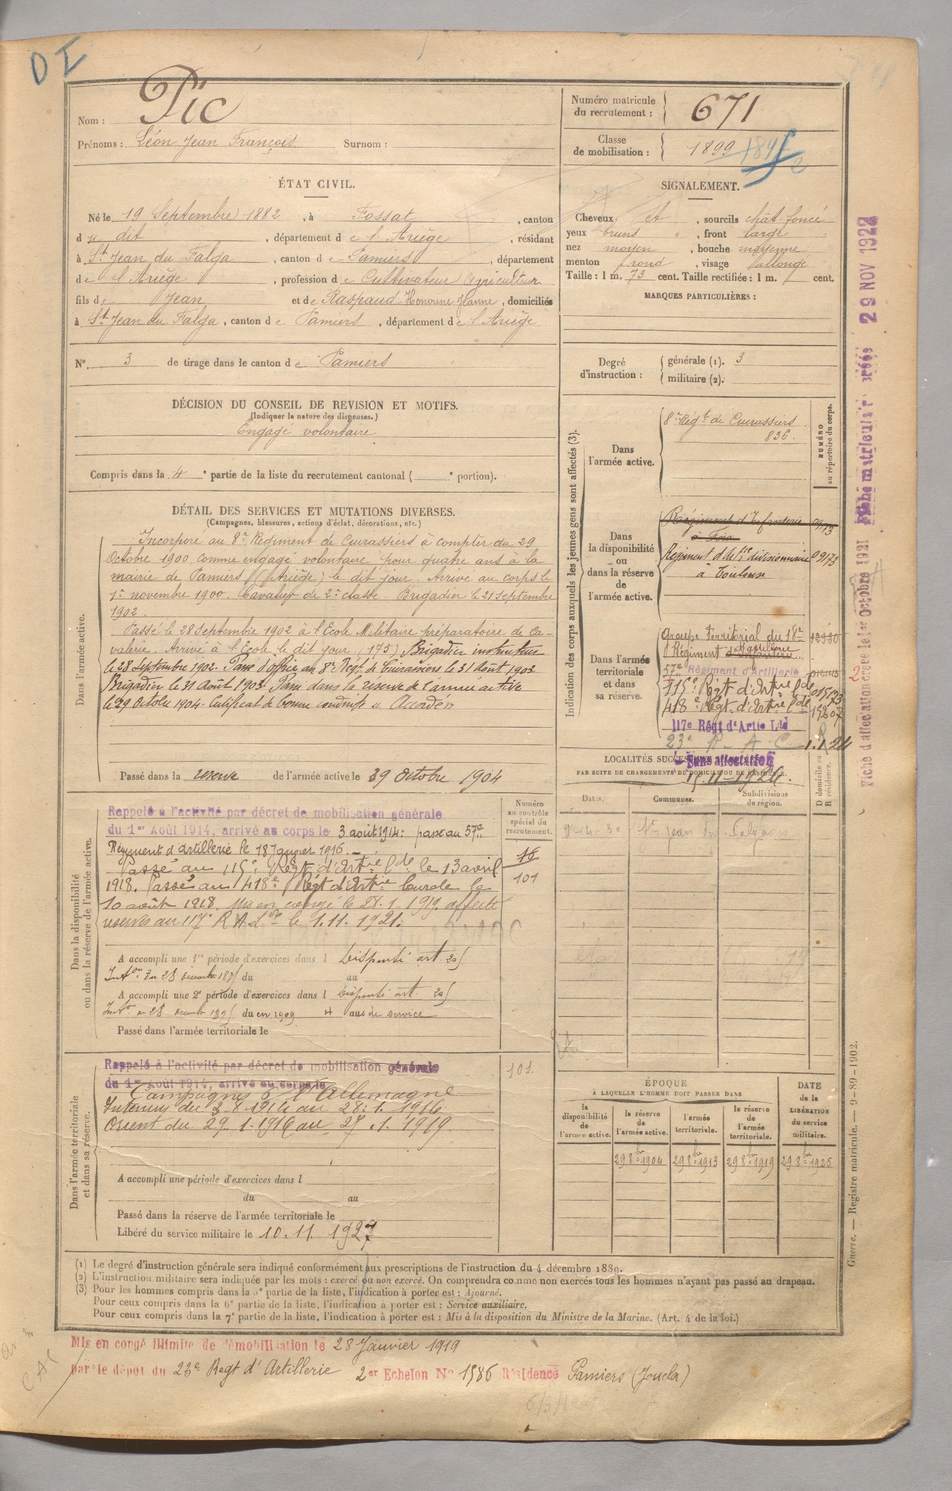 DI
Nom : Pic
Prénoms : Léon Jean François Surnom :
Numéro matricule du recrutement : 671
Classe de mobilisation : 1899
ÉTAT CIVIL.
Né le 19 Septembre 1882, à Fossat, canton
du dit, département de l'Ariège, résidant
à St Jean du Falga, canton de Pamiers, département
de l'Ariège, profession de Cultivateur Agriculteur
fils de Jean et de Raspaud Honorine Jeanne, domiciliés
à St Jean du Falga, canton de Pamiers, département de l'Ariège
N° 3 de tirage dans le canton de Pamiers
SIGNALEMENT.
Cheveux et, sourcils chât foncé
yeux bruns, front large
nez moyen, bouche moyenne
menton rond, visage allongé
Taille : 1 m. 73 cent. Taille rectifiée : 1 m. cent.
MARQUES PARTICULIÈRES :
Degré d'instruction : générale (1). 3
militaire (2).
DÉCISION DU CONSEIL DE REVISION ET MOTIFS.
(Indiquer la nature des dispenses.)
Engagé volontaire
Compris dans la 4e partie de la liste du recrutement cantonal ( e portion).
DÉTAIL DES SERVICES ET MUTATIONS DIVERSES.
(Campagnes, blessures, actions d'éclat, décorations, etc.)
Dans l'armée active.
Incorporé au 8e Régiment de Cuirassiers à compter du 29
Octobre 1900 comme engagé volontaire pour quatre ans à la
mairie de Pamiers (Ariège) le dit jour. Arrivé au corps le
1er novembre 1900. Cavalier de 2e classe. Brigadier le 21 Septembre
1902.
Passé le 28 Septembre 1902 à l'Ecole Militaire préparatoire de Ca-
valerie. Arrivé à l'Ecole le dit jour (175) Brigadier instructeur
le 28 Septembre 1902. Passé d'office au 8e Régt de Cuirassiers le 31 Août 1903
Brigadier le 31 Août 1903. Passé dans la réserve de l'armée active
le 29 Octobre 1904. Certificat de bonne conduite accordé
Passé dans la réserve de l'armée active le 29 Octobre 1904
Indication des corps auxquels les jeunes gens sont affectés (3).
NUMÉRO au répertoire du corps.
Dans l'armée active.
8e Régt de Cuirassiers
836
Dans la disponibilité ou dans la réserve de l'armée active.
Régiment d'Infanterie
à Foix
Régiment d'Artie divisionnaire
à Toulouse
Dans l'armée territoriale et dans sa réserve.
Groupe Territorial du 18e
Régiment d'Artillerie
57e Régiment d'Artillerie
115e Régt d'Artrie Lde
418e Régt. d'Artrie Lde
117e Régt d'Artie Lde
23e R.A.C 1.1.24
Sans affectation
15-11-1926.
LOCALITÉS SUCCESSIVES
PAR SUITE DE CHANGEMENTS DE DOMICILE OU DE RÉSIDENCE.
Dates. Communes. Subdivisions de région. D domicile ou R résidence.
St Jean du Falga
Numéro au contrôle spécial du recrutement.
101
Dans la disponibilité ou dans la réserve de l'armée active.
Rappelé à l'activité par décret de mobilisation générale
du 1er Août 1914, arrivé au corps le 3 août 1914: passé au 57e
Régiment d'Artillerie le 18 Janvier 1916.
Passé au 115e Régt d'Artrie Lde le 13 avril
1918. Passé au 418e Régt d'Artrie Lourde le
10 août 1918. Mis en congé le 28.1.1919 affecté
réserve au 117e R.A.L le 1.11.1921.
A accompli une 1re période d'exercices dans l Dispensé art 20
Inston du 28 décembre 1895 du au
A accompli une 2e période d'exercices dans l Dispensé art 20
Inston du 28 décembre 1895 du en 1909 4 ans de service
Passé dans l'armée territoriale le
Dans l'armée territoriale et dans sa réserve.
Rappelé à l'activité par décret de mobilisation générale
du 1er Août 1914, arrivé au corps le
Campagnes c/ l'Allemagne
Intérieur du 3.8.1914 au 28.1.1916
Orient du 29.1.1916 au 27.1.1919.
101.
A accompli une période d'exercices dans l
du au
Passé dans la réserve de l'armée territoriale le
Libéré du service militaire le 10.11.1927
ÉPOQUE
À LAQUELLE L'HOMME DOIT PASSER DANS
DATE de la LIBÉRATION du service militaire.
la disponibilité de l'armée active. la réserve de l'armée active. l'armée territoriale. la réserve de l'armée territoriale.
29 8bre 1904 29 8bre 1913 29 8bre 1919 29 8bre 1925
(1) Le degré d'instruction générale sera indiqué conformément aux prescriptions de l'instruction du 4 décembre 1889.
(2) L'instruction militaire sera indiquée par les mots : exercé ou non exercé. On comprendra comme non exercés tous les hommes n'ayant pas passé au drapeau.
(3) Pour les hommes compris dans la 5e partie de la liste, l'indication à porter est : Ajourné.
Pour ceux compris dans la 6e partie de la liste, l'indication à porter est : Service auxiliaire.
Pour ceux compris dans la 7e partie de la liste, l'indication à porter est : Mis à la disposition du Ministre de la Marine. (Art. 4 de la loi.)
Mis en congé illimité de démobilisation le 28 Janvier 1919
par le dépot du 23e Régt d'Artillerie 2er Echelon N° 1586 Résidence Pamiers (Joucla)
Guerre. — Registre matricule. — 9-89-1902.
Fiche d'affectation créée le 1er Octobre 1921
Fiche matriculaire créée 29 NOV 1922